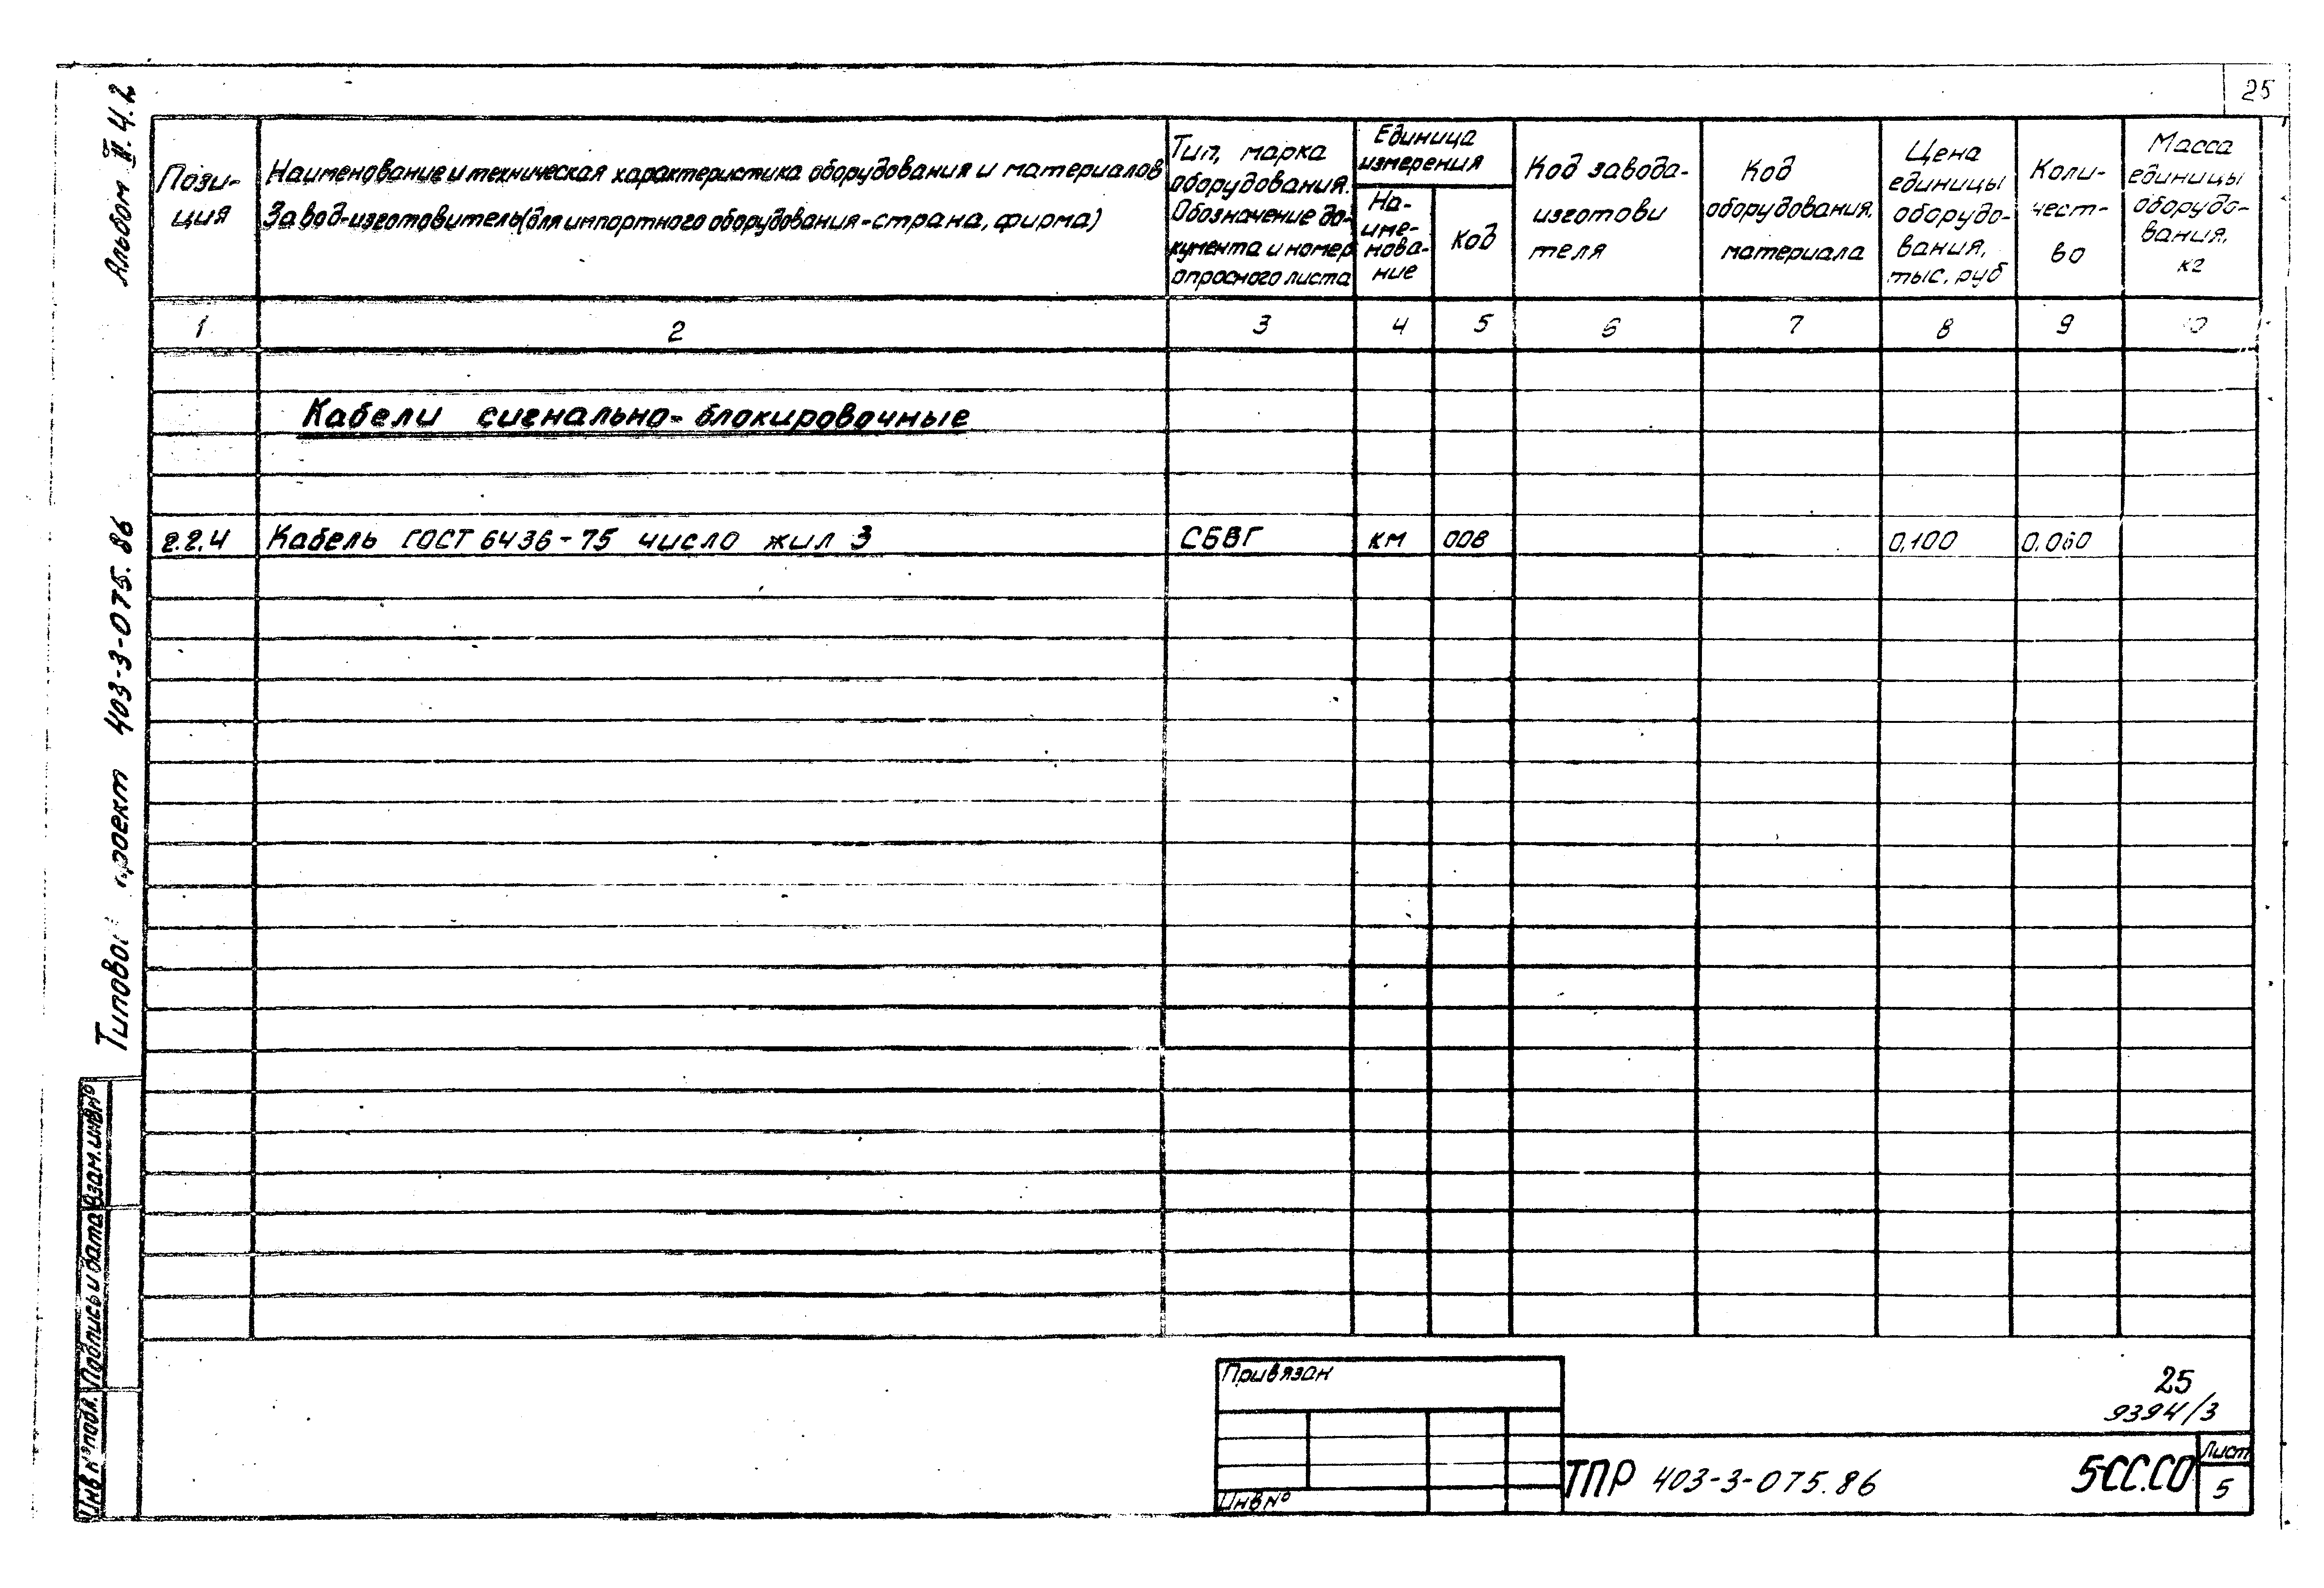 25
Альбом II. Ч.2
Типовой проект 403-3-075.86
Пози-
ция
Наименование и техническая характеристика оборудования и материалов
Завод-изготовитель (для импортного оборудования-страна, фирма)
Тип, марка
оборудования.
Обозначение до-
кумента и номер
опросного листа
Единица
измерения
На-
име-
нова-
ние
Код
Код завода-
изготови
теля
Код
оборудования,
материала
Цена
единицы
оборудо-
вания,
тыс. руб
Коли-
чест-
во
Масса
единицы
оборудо-
вания,
кг
1 2 3 4 5 6 7 8 9 10
Кабели сигнально-блокировочные
2.2.4 Кабель ГОСТ 6436-75 число жил 3 СБВГ км 008 0,100 0,060
Взам. инв №
Подпись и дата
Инв № подл.
Привязан
Инв №
25
9394/3
ТПР 403-3-075.86 5-СС.СО
Лист
5